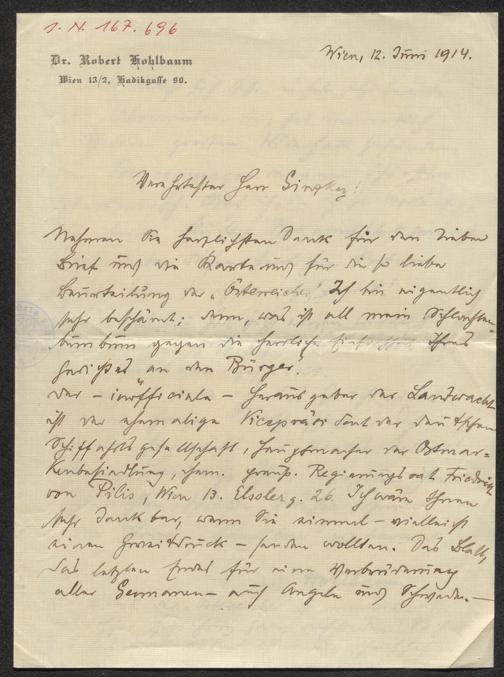 J. N. 167.696
Dr. Robert Hohlbaum
Wien 13/2, Hadikgasse 90.
Wien, 12. Juni 1914.
Verehrtester Herr Ginzkey!
Nehmen Sie herzlichsten Dank für den lieben
Brief und die Karte und für die so liebe
Beurteilung der „Österreicher“! Ich bin eigentlich
sehr beschämt; denn, was ist all mein Schlachten-
bumbum gegen die herrliche Ihres
Gedichtes an den Bürger!
Der – inofficiele – Herausgeber der Landwacht
ist der ehemalige Vicepräsident der deutschen
Schiffahrtsgesellschaft, Hauptmacher der Ostmar-
kenbesiedlung, ehem. preuß. Regierungsrat Friedrich
von Pilis, Wien 13. Elsslerg. 26. Ich wäre Ihnen
sehr dankbar, wenn Sie einmal – vielleicht
einen Zweitdruck – senden wollten. Das Blatt,
das letzten Endes für eine Verbrüderung
aller Germanen – auch Angeln und Schweden. –